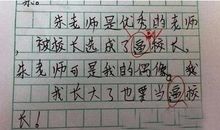 朱老师是优秀的老师
，被校长选成了逼校长，
朱老师可是我的偶像，我
我长大了也要当逼校
长！